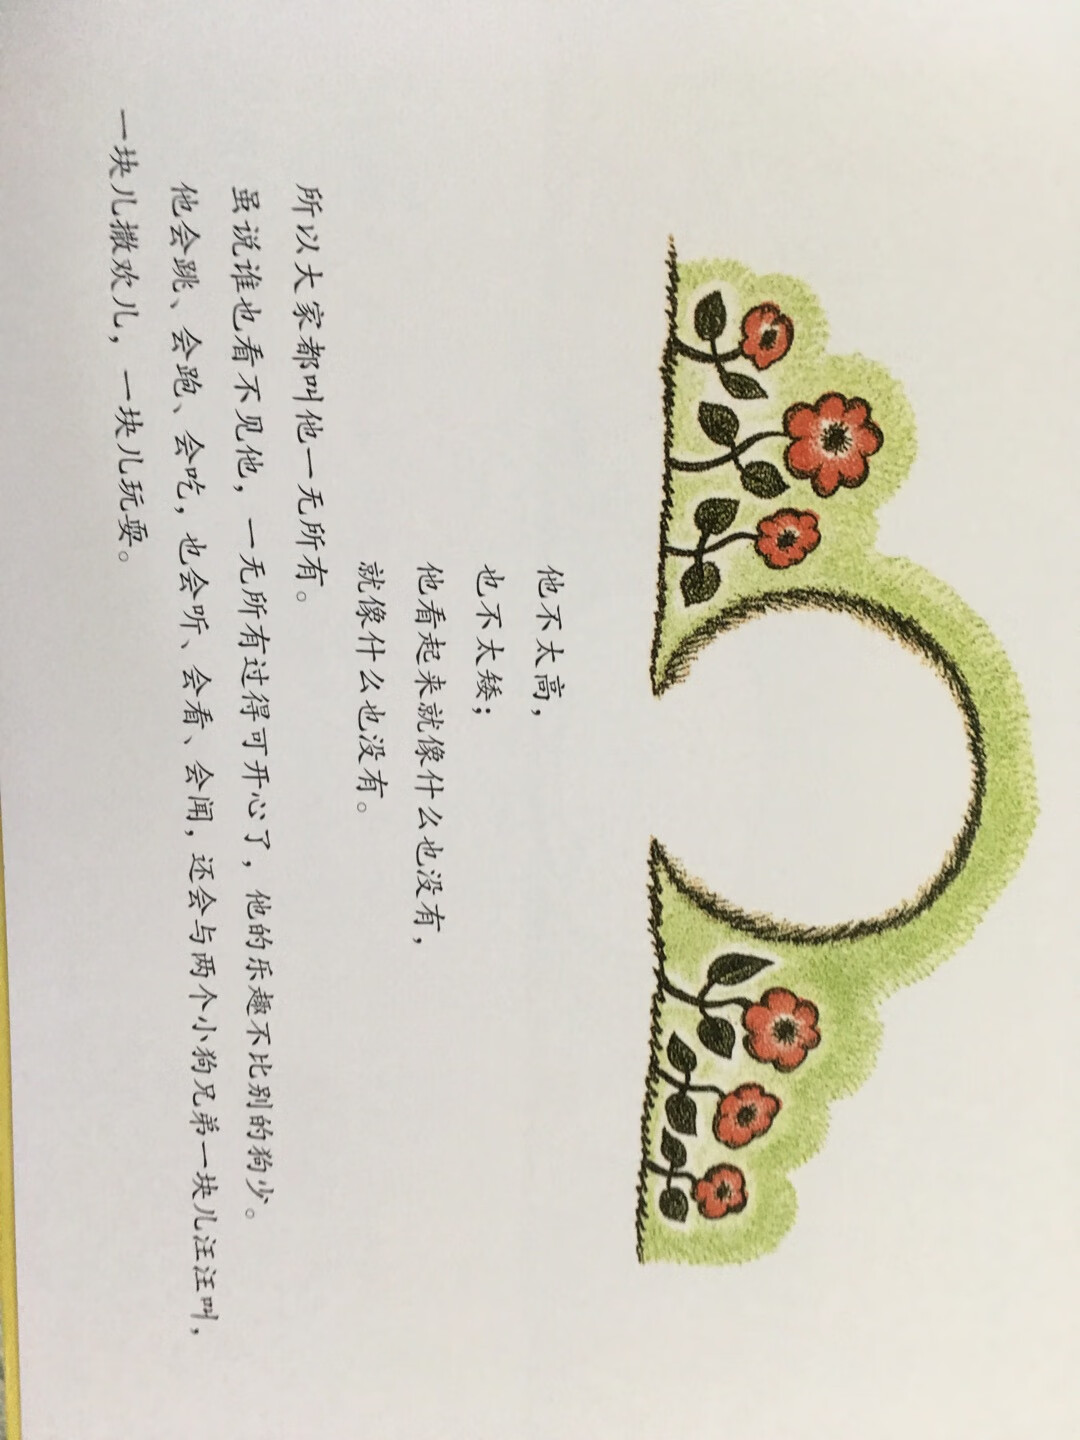 他不太高，
也不太矮；
他看起来就像什么也没有，
就像什么也没有。
所以大家都叫他一无所有。
虽说谁也看不见他，一无所有过得可开心了，他的乐趣不比别的狗少。
他会跳、会跑、会吃，也会听、会看、会闻，还会与两个小狗兄弟一块儿汪汪叫，
一块儿撒欢儿，一块儿玩耍。